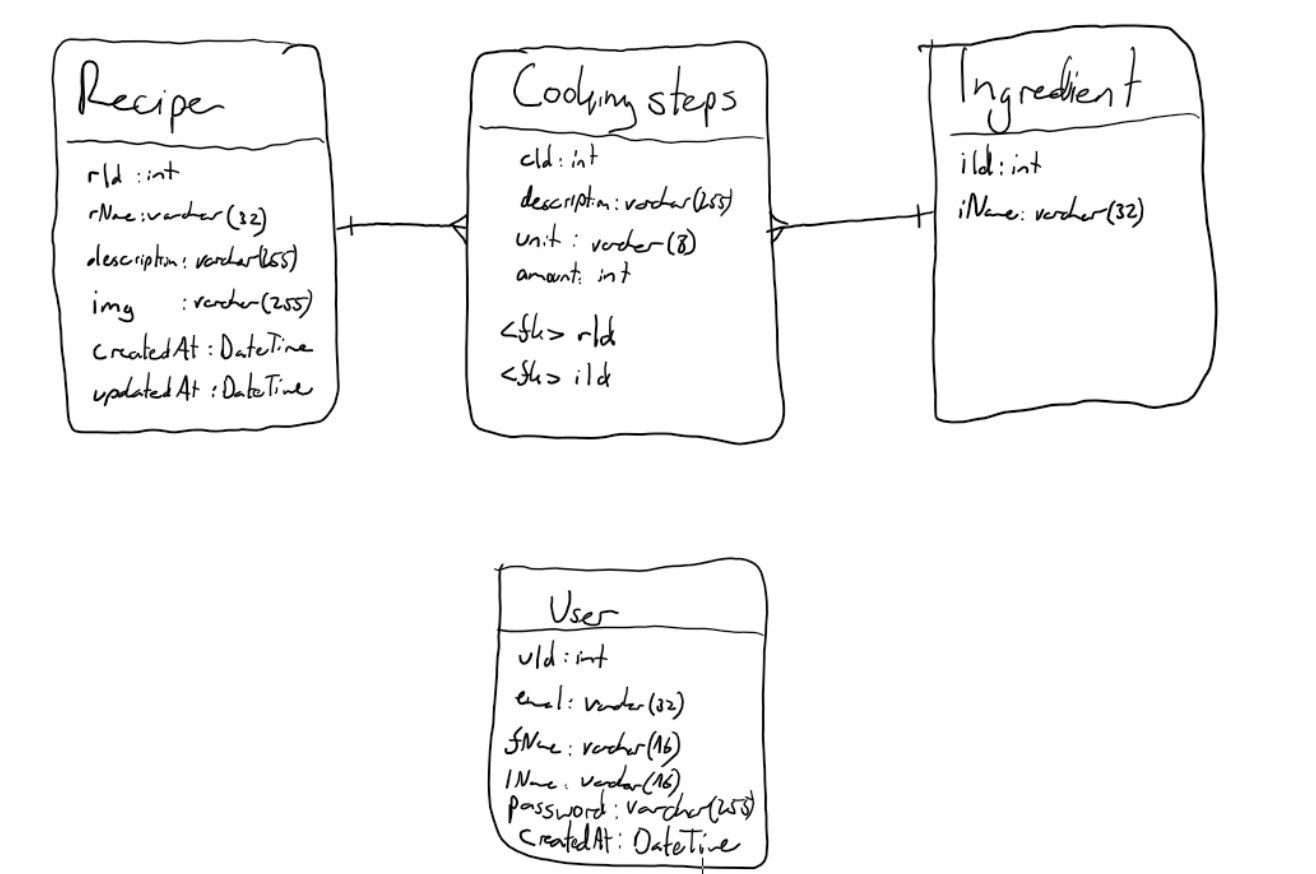 Reciper
rId : int
rName : varchar(32)
description : varchar(255)
img : varchar(255)
createdAt : DateTime
updatedAt : DateTime
Cooking steps
cId : int
description : varchar(255)
unit : varchar(8)
amount : int
<fk> rId
<fk> iId
Ingredient
iId : int
iName : varchar(32)
User
uId : int
email : varchar(32)
fName : varchar(16)
lName : varchar(16)
password : varchar(255)
CreatedAt : DateTime